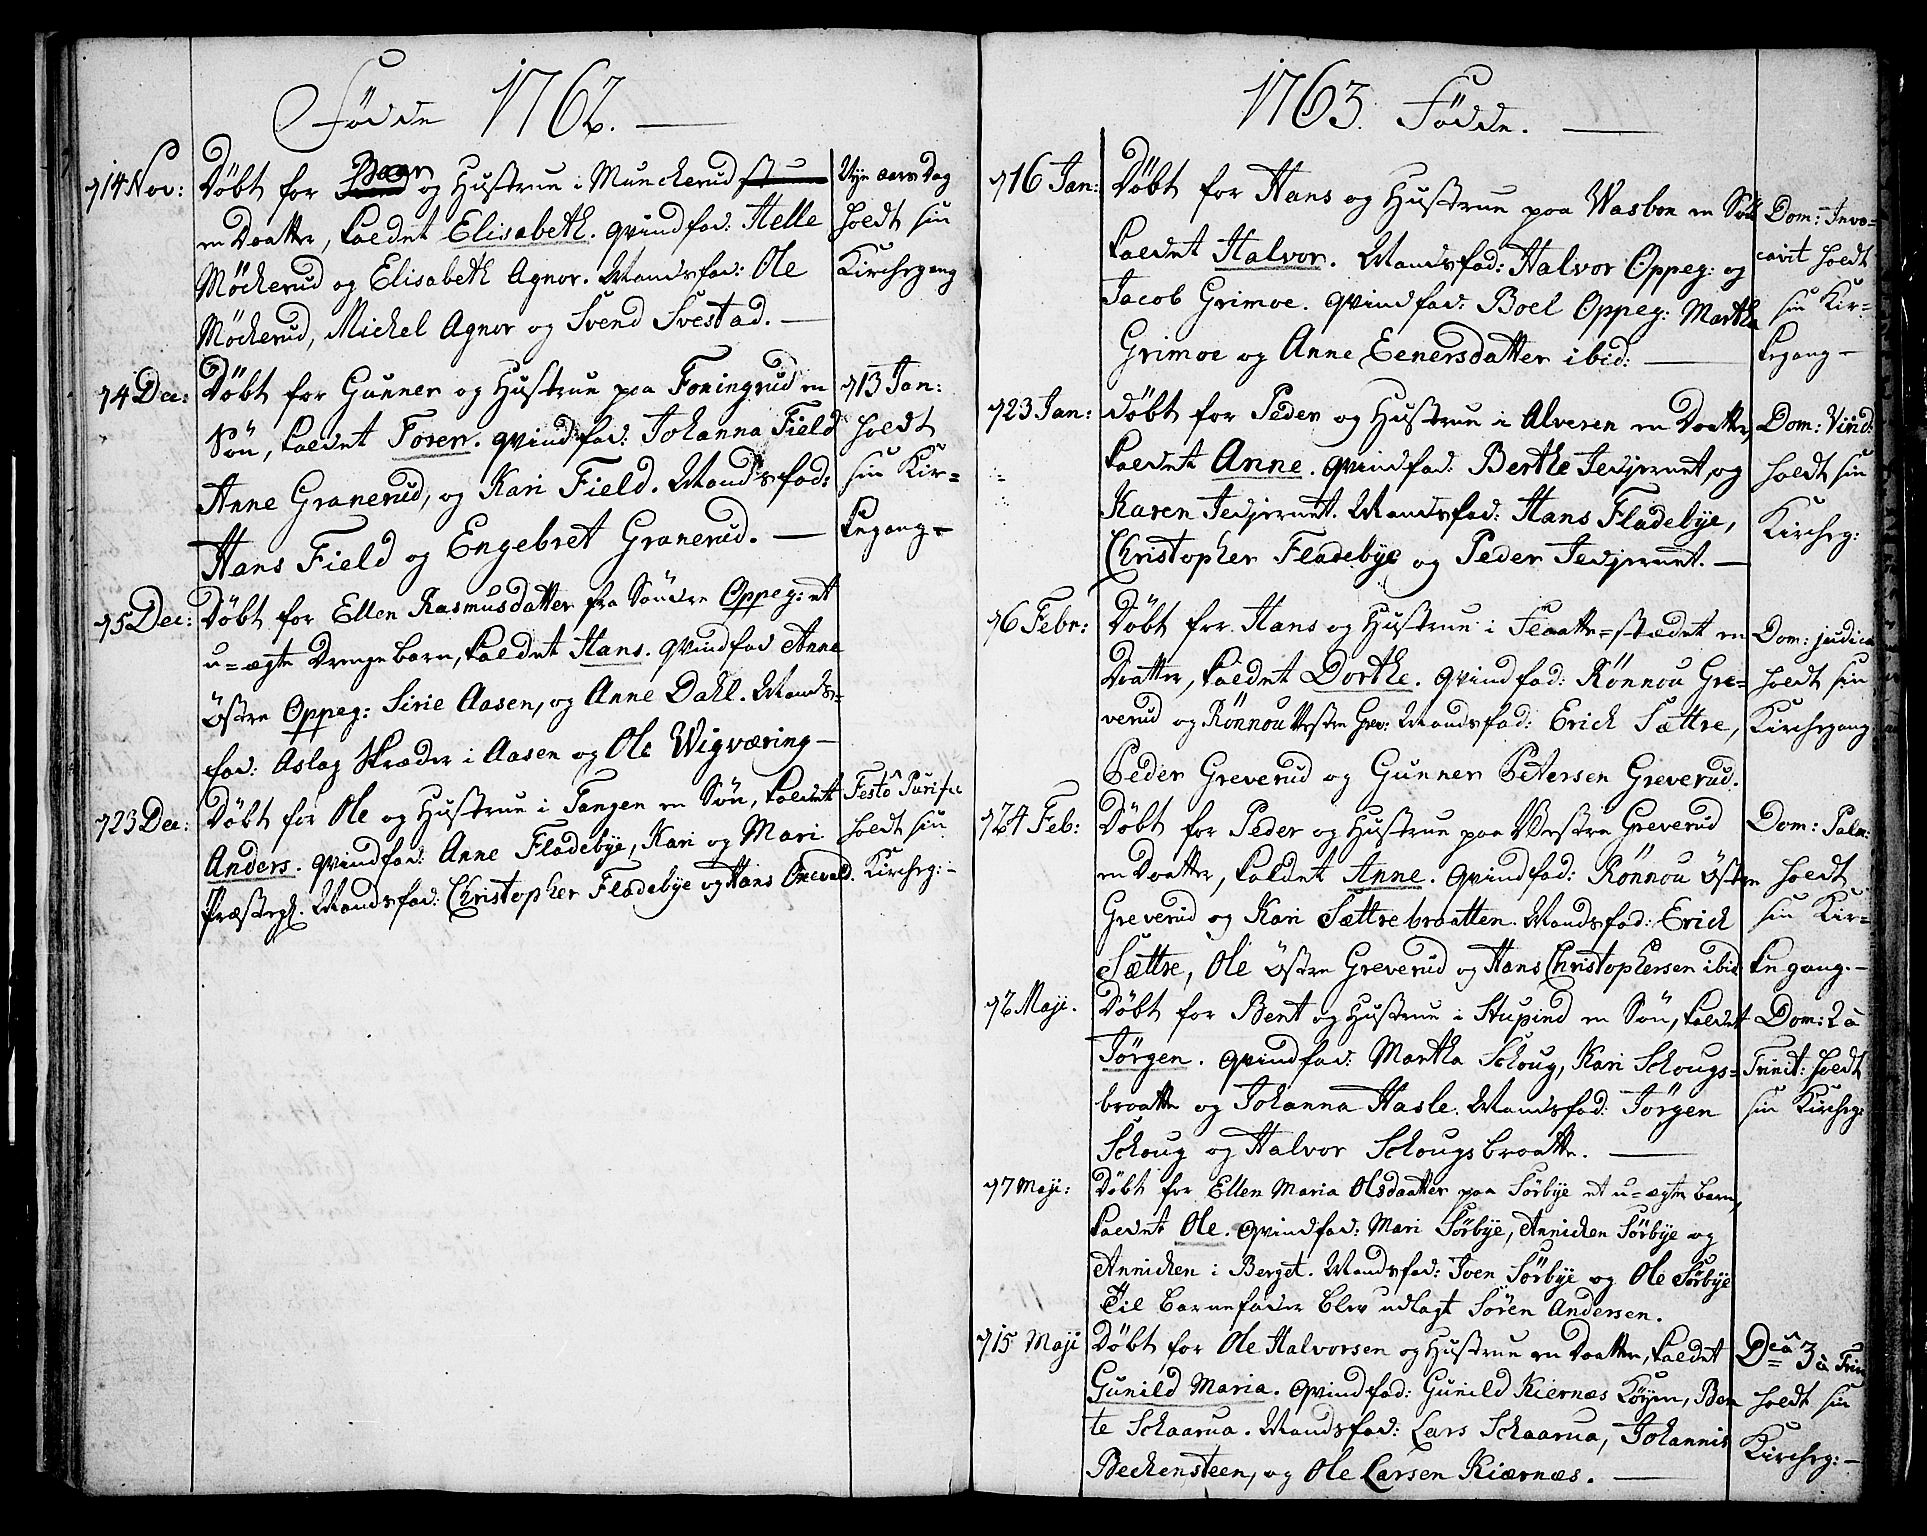 Fødde 1762.
14 Nov: Døbt for og Hustrue i Munckerud
en Daatter, kaldet Elisabeth. qvindfad: Helle
Möckerud og Elisabeth Agnor. Mandsfad: Ole
Möckerud, Michel Agnor og Svend Svestad.
Nyeaars Dag
holdt sin
Kirchegang
4 Dec: Døbt for Gunner og Hustrue paa Foningrud en
Søn, kaldet Foren. qvindfad: Johanna Field
Anne Granerud, og Kari Field. Mandsfad:
Hans Field og Engebret Granerud.
13 Jan:
holdt
sin Kir=
kegang
5 Dec: Døbt for Ellen Rasmusdatter fra Søndre Oppeg: et
u=ægte Drengebarn, kaldet Hans. qvindfad Anne
Østre Oppeg: Sirie Aasen, og Anne Dahl. Mands=
fad: Aslag Skræder i Aasen og Ole Wigværing
23 Dec: Døbt for Ole og Hustrue i Tangen en Søn, kaldet
Anders. qvindfad: Anne Fladebÿe, Kari og Mari
Præstegl. Mandsfad: Christopher Fladebÿe og Hans Onevald.
Festo Purific
holdt sin
Kircheg:
1763. Fødde.
16 Jan: Døbt for Hans og Hustrue paa Wasbon en Søn
kaldet Halvor. Mandsfad: Halvor Oppeg: og
Jacob Grimoe. qvindfad: Boel Oppeg: Martha
Grimoe og Anne Eenersdatter ibid:
Dom: Invo=
cavit holdt
sin Kir=
kegang
23 Jan: Døbt for Peder og Hustrue i Alveren en Daatter,
kaldet Anne. qvindfad: Berthe Tedjernet, og
Karen Tedjernet. Mandsfad: Hans Fladebÿe,
Christopher Fladebÿe og Peder Tedjernet.
Dom: Vind:
holdt sin
Kircheg:
6 Febr: Døbt for Hans og Hustrue i Slaatte=stædet en
Daatter, kaldet Dorthe. qvindfad: Rönnou Gre=
verud og Rönnou Vestre Grev: Mandsfad: Erich Sættre,
Peder Greverud og Gunner Petersen Greverud.
Dom: judica
holdt sin
Kirchegang
24 Feb: Døbt for Peder og Hustrue paa Vestre Greverud
en Daatter, kaldet Anne. qvindfad: Rönnou Østre
Greverud og Kari Sættrebraatten. Mandsfad: Erich
Sættre, Ole Østre Greverud og Hans Christophersen ibid
Dom: Palm:
holdt
sin Kir=
kegang.
2 Maji. Døbt for Bent og Hustrue i Stupind en Søn, kaldet
Jörgen. qvindfad: Martha Schoug, Kari Schougs=
braatte og Johanna Hasle. Mandsfad: Jörgen
Schoug og Halvor Schougsbraatte.
Dom: 2 à
Trinit: holdt
sin Kircheg:
7 Maji: Døbt for Ellen Maria Olsdaatter paa Sörbÿe et u=ægte barn,
kaldet Ole. qvindfad: Mari Sörbÿe, Annichen Sörbÿe og
Annichen i Berget. Mandsfad: Iven Sörbÿe og Ole Sörbÿe
Til Barnefader blev udlagt Sören Andersen.
15 Maji Døbt for Ole Halvorsen og Hustrue en Daatter, kaldet
Gunild Maria. qvindfad: Gunild Kiernæs Köÿen, Ben
te Schaarua. Mandsfad: Lars Schaarua, Johannis
Beckensteen, og Ole Larsen Kiærnæs.
3 à Trin
holdt sin
Kircheg: